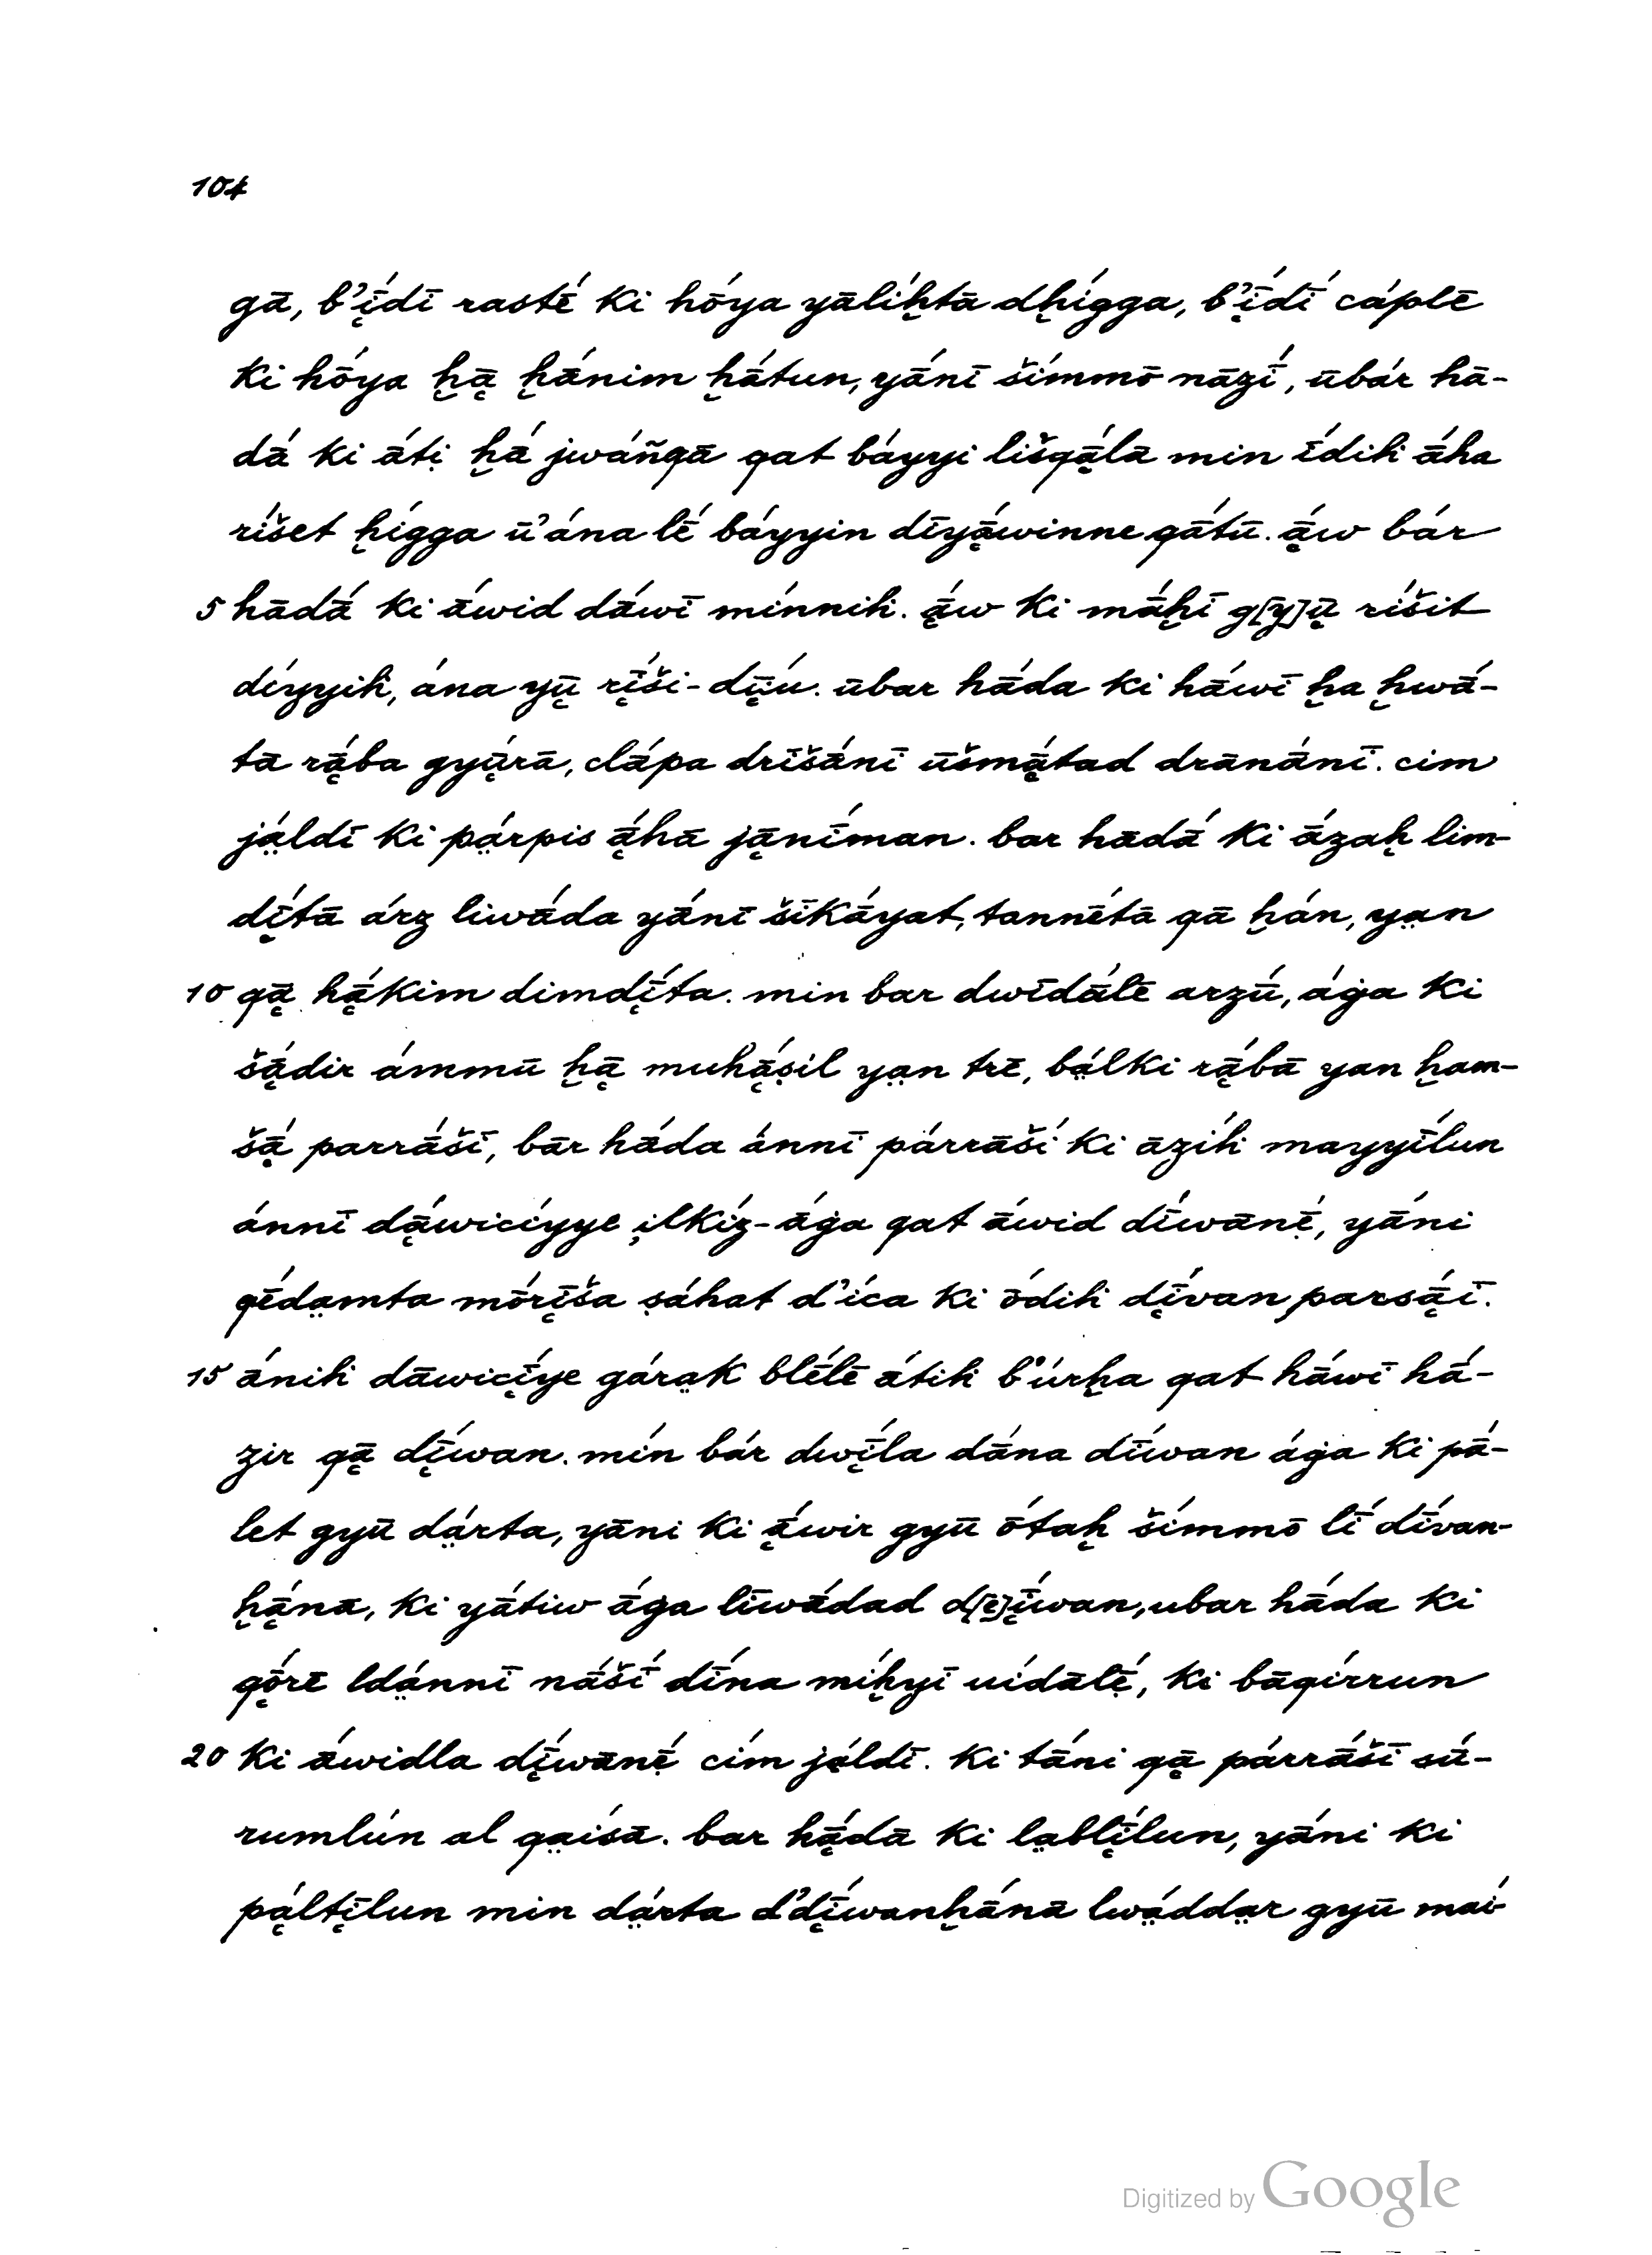 104
gā, b’ī̜́dī rastḗ ki hṓya yālíḫtā dḫígga, b’ī̜dī́ cáplē
ki hṓya ḫā̜ ḫā́nim ḫā́tun, yā́nī šímmō nāzī́, ūbár hā-
dā́ ki ā́tị ḫā́ jwáñqā qat báyyi lišqā̜́lā min ī́dih ā́ha
ríšet ḫígga ū’ána lḗ báyyin dīyā̜́winne qā́tū. ā̜́w bár
5 hādā́ ki ā́wid dā́wī mínnih. ā̜́w ki mā́ḫī g[y]ū̜ ríšit
díyyih, ána yū̜ rī̜́ši-dū̜́u. ūbar hā́da ki hā́wī ḫa ḫwā́-
tā rā̜́ba gyū̜́rā, clā́pa drīšā́nī ūšmā̜́tad drānā́nī. cim
jä́ldī ki pä́rpis ā̜́hā jā̜nī́man. bar hādā́ ki ā́zaḫ lim-
dī̜́tā árz liwā́da yā́nī šīkā́yat, tannḗtā qā ḫán, yạn
10 qā̜ hā̜́kim dimdī̜́ta. min bar dwīdā́lē arzū́, áġa ki
šā̜́dir ámmū ḫā̜ muhā̜́ṣil yạn trē, bä́lki rā̜́bā yan ḫam-
šā̜́ parrā́šī, bār hā́da ánnī párrāšī́ ki āzíh mayyī́lun
ánnī dā̜́wicíyye ịlkíz-áġa qat ā́wid dī́wānẹ̄́, yā́ni
qḗdạmta mṓrī̜ša ṣáhat d’íca ki ṓdih dī̜́van parsā̜́ī.
15 ā́nih dāwicī̜́ye gárạk blḗlē ā́tih b’úrḫa qat hā́wī hā́-
zir qā̜ dī̜́wan. mín bár dwī̜́la dā́na dī́wan áġa ki pā́-
let gyū dä́rta, yāni ki ā̜́wir gyū ṓtaḫ šímmō lī́ dī́van-
ḫā̜́nā, ki yā́tiw áġa līwā́dad d[ē]ī̜́wan, ubar hā́da ki
qṓ̜rē ldä́nnī nā́šī́ dī́na míḫyī uidālẹ̄́, ki bāqírrun
20 ki ā́widla dī̜́wānẹ̄́ cím jä́ldī. ki tā́ni qā̜ párrāšī sū́-
rumlún al qạisā. bar hā̜́dā ki lạblī̜́lun, yā́ni ki
pā̜́ltī̜lun min dä́rta d’dī̜́wanḫā́nā lwä́ddạr gyū mai-
Digitized by Google